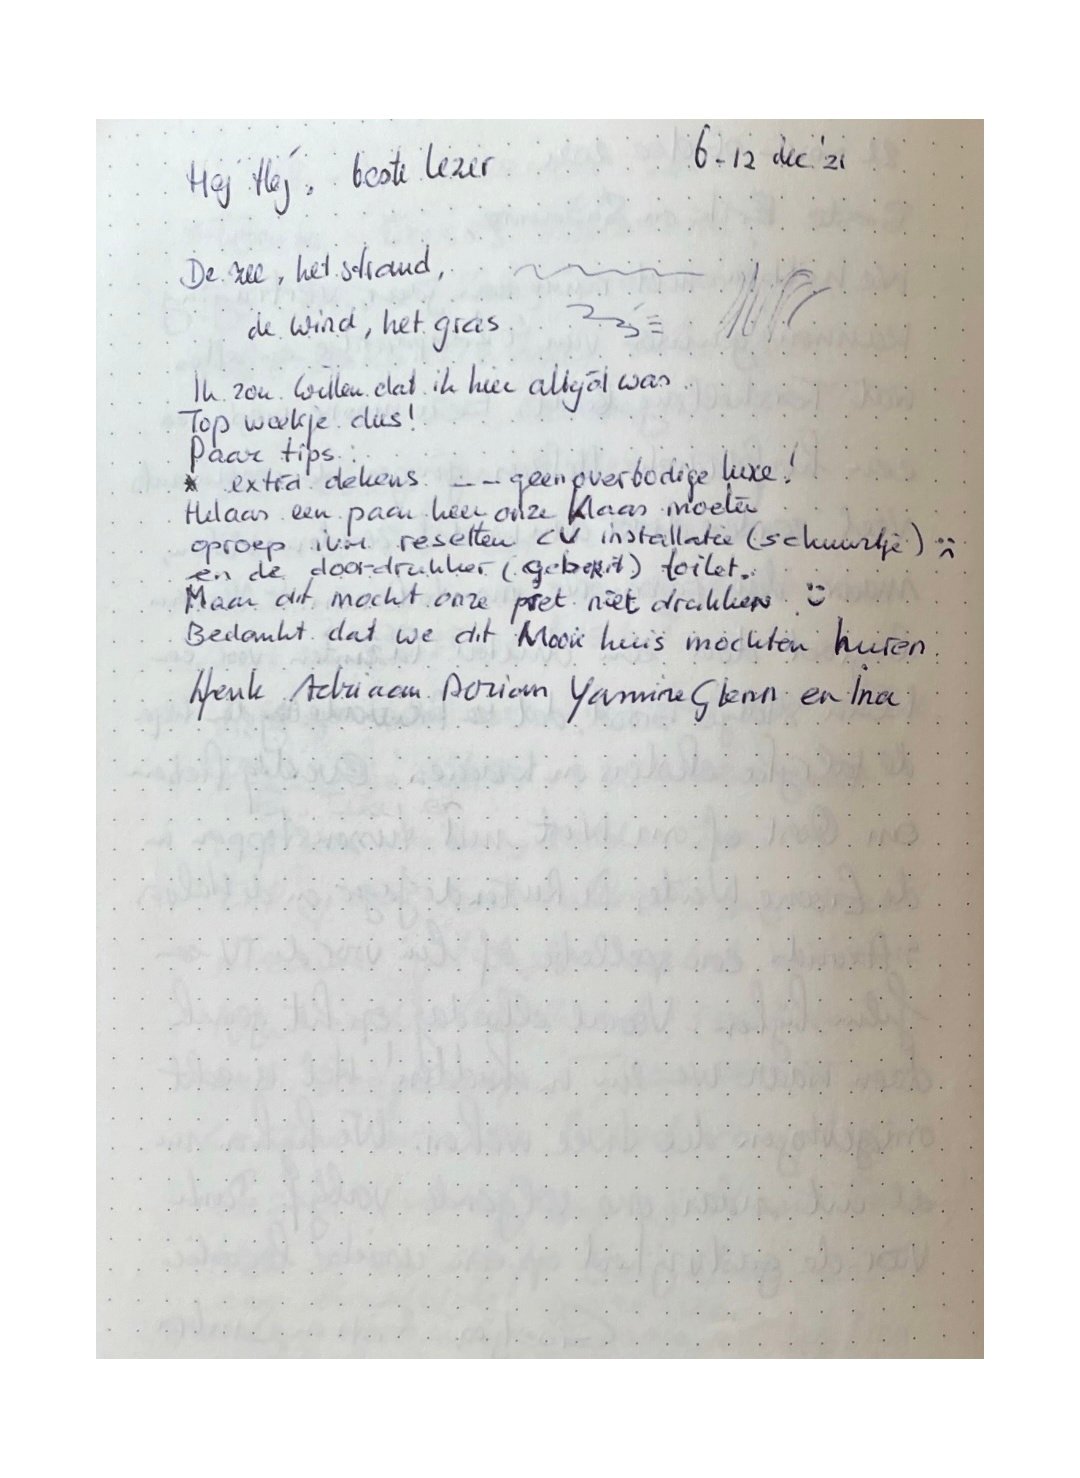 Hej Hej, beste lezer 6-12 dec '21
De zee, het strand,
de wind, het gras
Ik zou willen dat ik hier altijd was
Top weekje dus!
Paar tips:
* extra dekens --- geen overbodige luxe!
Helaas een paar keer onze Klaas moeten
oproep ivm resetten CV installatie (schuurtje) :(
en de doordrukker (geberit) toilet.
Maar dit mocht onze pret niet drukken :)
Bedankt dat we dit Mooie huis mochten huren.
Henk Adriaan Dorian Yasmine Glenn en Ina